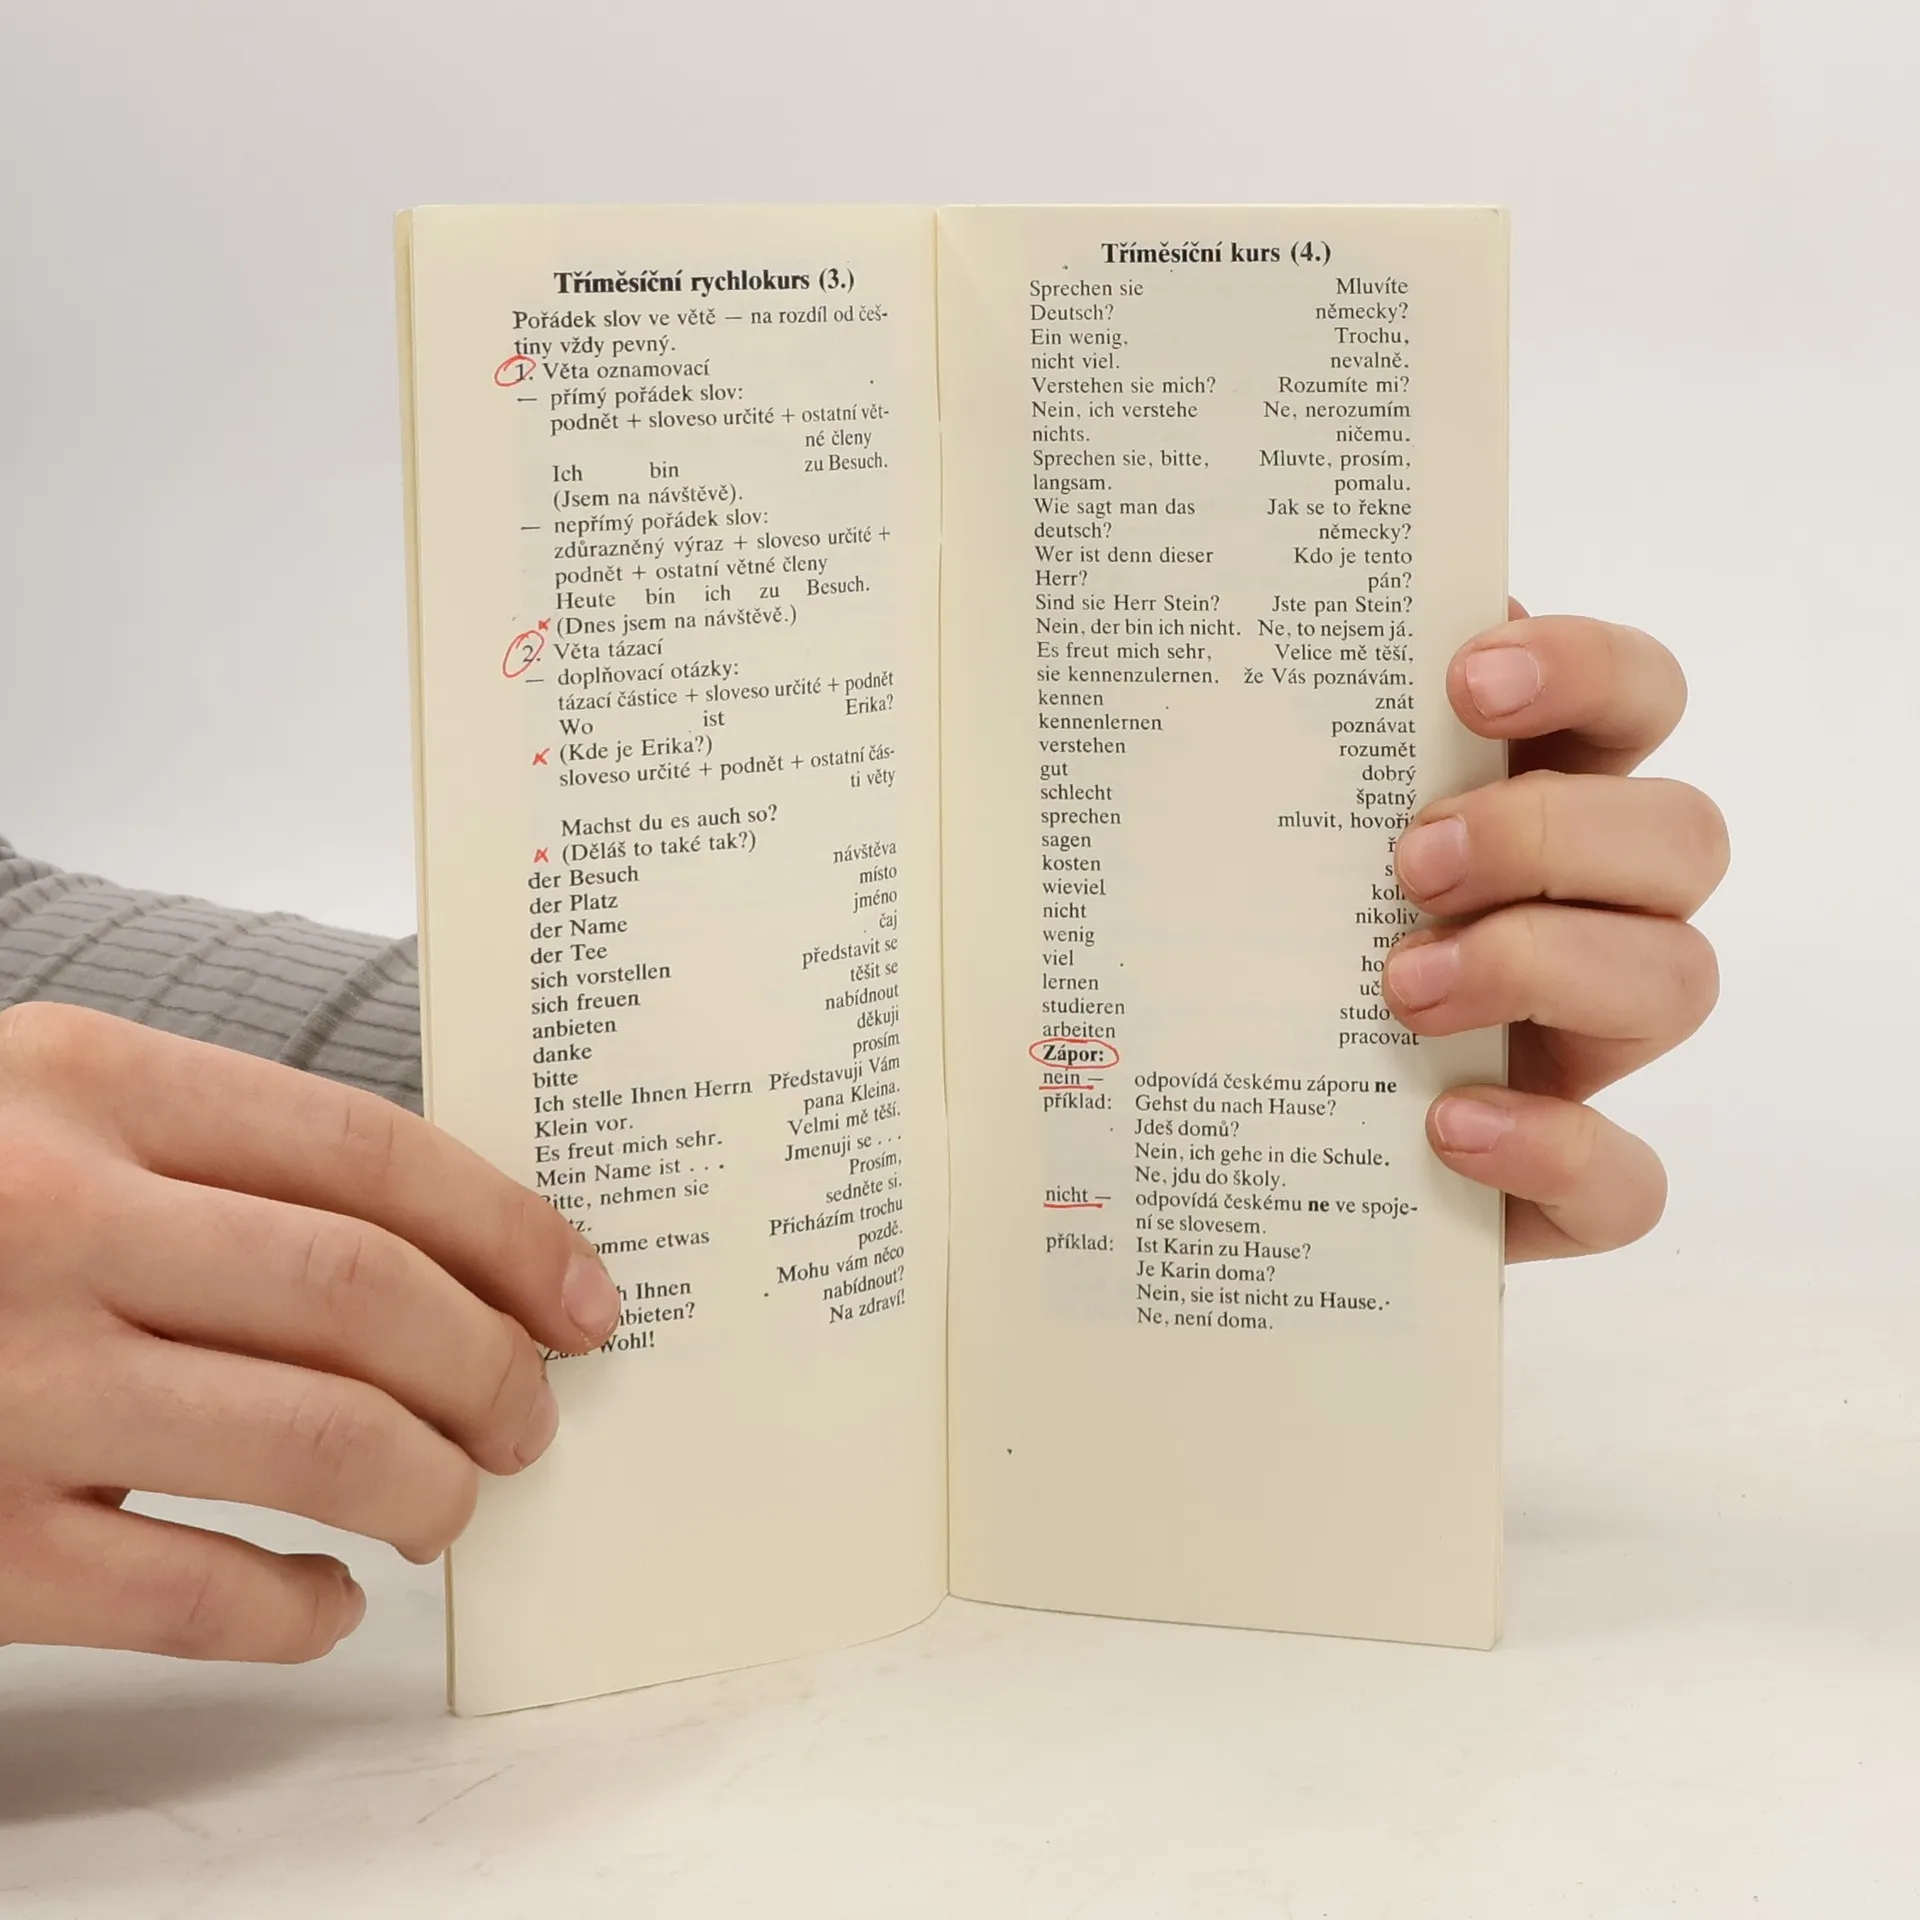 Tříměsíční rychlokurs (3.)
Pořádek slov ve větě — na rozdíl od češ-
tiny vždy pevný.
1. Věta oznamovací
— přímý pořádek slov:
podnět + sloveso určité + ostatní vět-
né členy
Ich bin zu Besuch.
(Jsem na návštěvě).
— nepřímý pořádek slov:
zdůrazněný výraz + sloveso určité +
podnět + ostatní větné členy
Heute bin ich zu Besuch.
(Dnes jsem na návštěvě.)
2. Věta tázací
— doplňovací otázky:
tázací částice + sloveso určité + podnět
Wo ist Erika?
(Kde je Erika?)
sloveso určité + podnět + ostatní čás-
ti věty
Machst du es auch so?
(Děláš to také tak?)
der Besuch návštěva
der Platz místo
der Name jméno
der Tee čaj
sich vorstellen představit se
sich freuen těšit se
anbieten nabídnout
danke děkuji
bitte prosím
Ich stelle Ihnen Herrn Představuji Vám
Klein vor. pana Kleina.
Es freut mich sehr. Velmi mě těší.
Mein Name ist . . . Jmenuji se . . .
nehmen sie Prosím,
sedněte si.
etwas Přicházím trochu
pozdě.
Ihnen Mohu vám něco
nabídnout?
Wohl! Na zdraví!
Tříměsíční kurs (4.)
Sprechen sie Mluvíte
Deutsch? německy?
Ein wenig, Trochu,
nicht viel. nevalně.
Verstehen sie mich? Rozumíte mi?
Nein, ich verstehe Ne, nerozumím
nichts. ničemu.
Sprechen sie, bitte, Mluvte, prosím,
langsam. pomalu.
Wie sagt man das Jak se to řekne
deutsch? německy?
Wer ist denn dieser Kdo je tento
Herr? pán?
Sind sie Herr Stein? Jste pan Stein?
Nein, der bin ich nicht. Ne, to nejsem já.
Es freut mich sehr, Velice mě těší,
sie kennenzulernen. že Vás poznávám.
kennen znát
kennenlernen poznávat
verstehen rozumět
gut dobrý
schlecht špatný
sprechen mluvit,
sagen
kosten
wieviel
nicht nikoliv
wenig
viel
lernen
studieren
arbeiten pracovat
Zápor:
nein — odpovídá českému záporu ne
příklad: Gehst du nach Hause?
Jdeš domů?
Nein, ich gehe in die Schule.
Ne, jdu do školy.
nicht — odpovídá českému ne ve spoje-
ní se slovesem.
příklad: Ist Karin zu Hause?
Je Karin doma?
Nein, sie ist nicht zu Hause.
Ne, není doma.